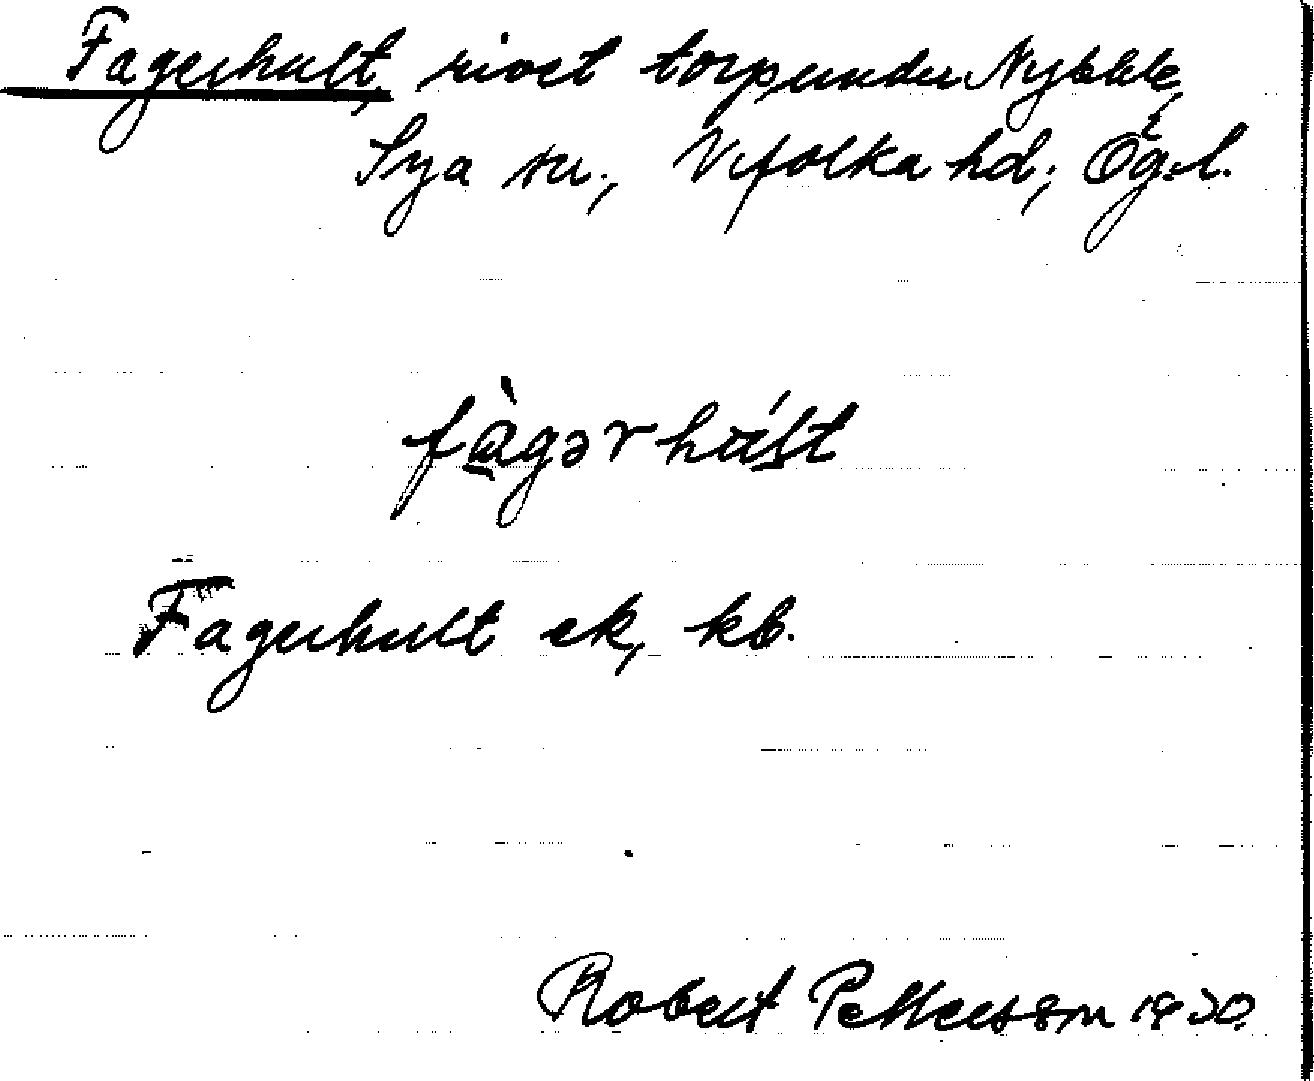 Fagerhult, rivet torp under Nybble,
Sya sn., Vifolka hd; Ög.l.
fàgərhúlt
Fagerhult ek, kb.
Robert Pettersson 1930.